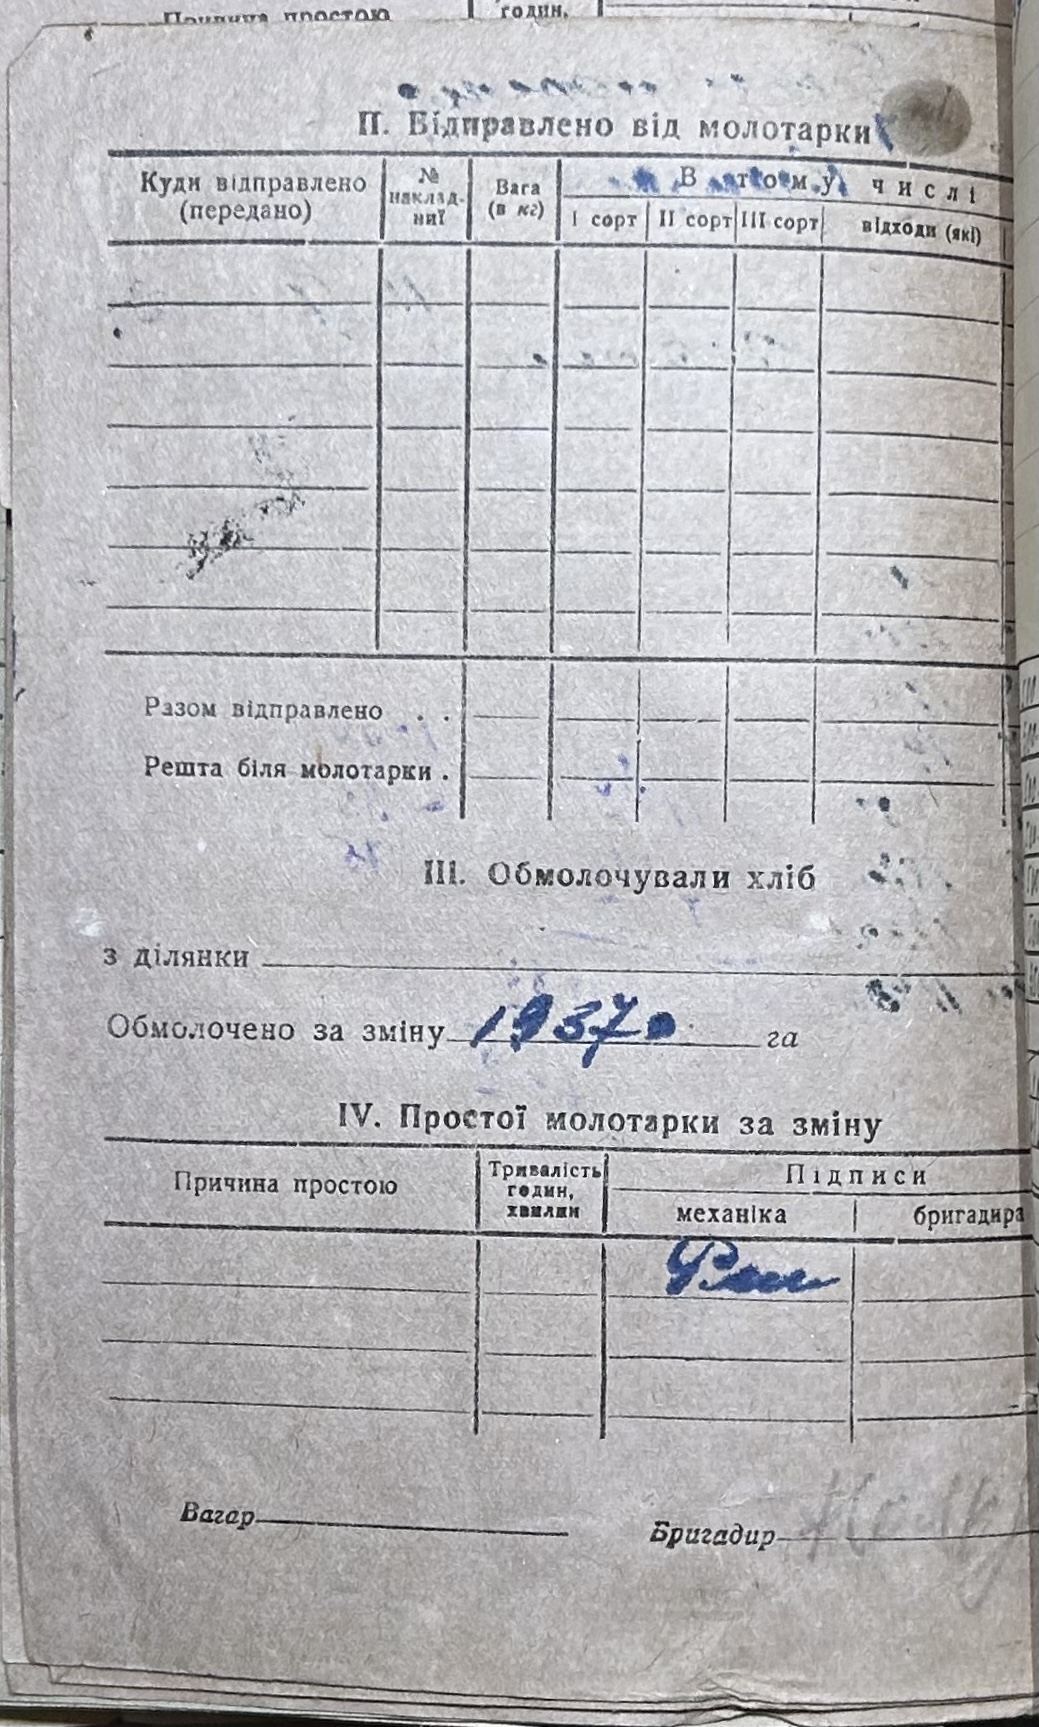 Причина простою
годин,
II. Відправлено від молотарки
Куди відправлено (передано)
№ наклад-ної
Вага (в кг)
В тому числі
I сорт
II сорт
III сорт
відходи (які)
Разом відправлено . .
Решта біля молотарки .
III. Обмолочували хліб
з ділянки
Обмолочено за зміну 1937 га
IV. Простої молотарки за зміну
Причина простою
Тривалість годин, хвилин
Підписи
механіка
бригадира
Вагар
Бригадир